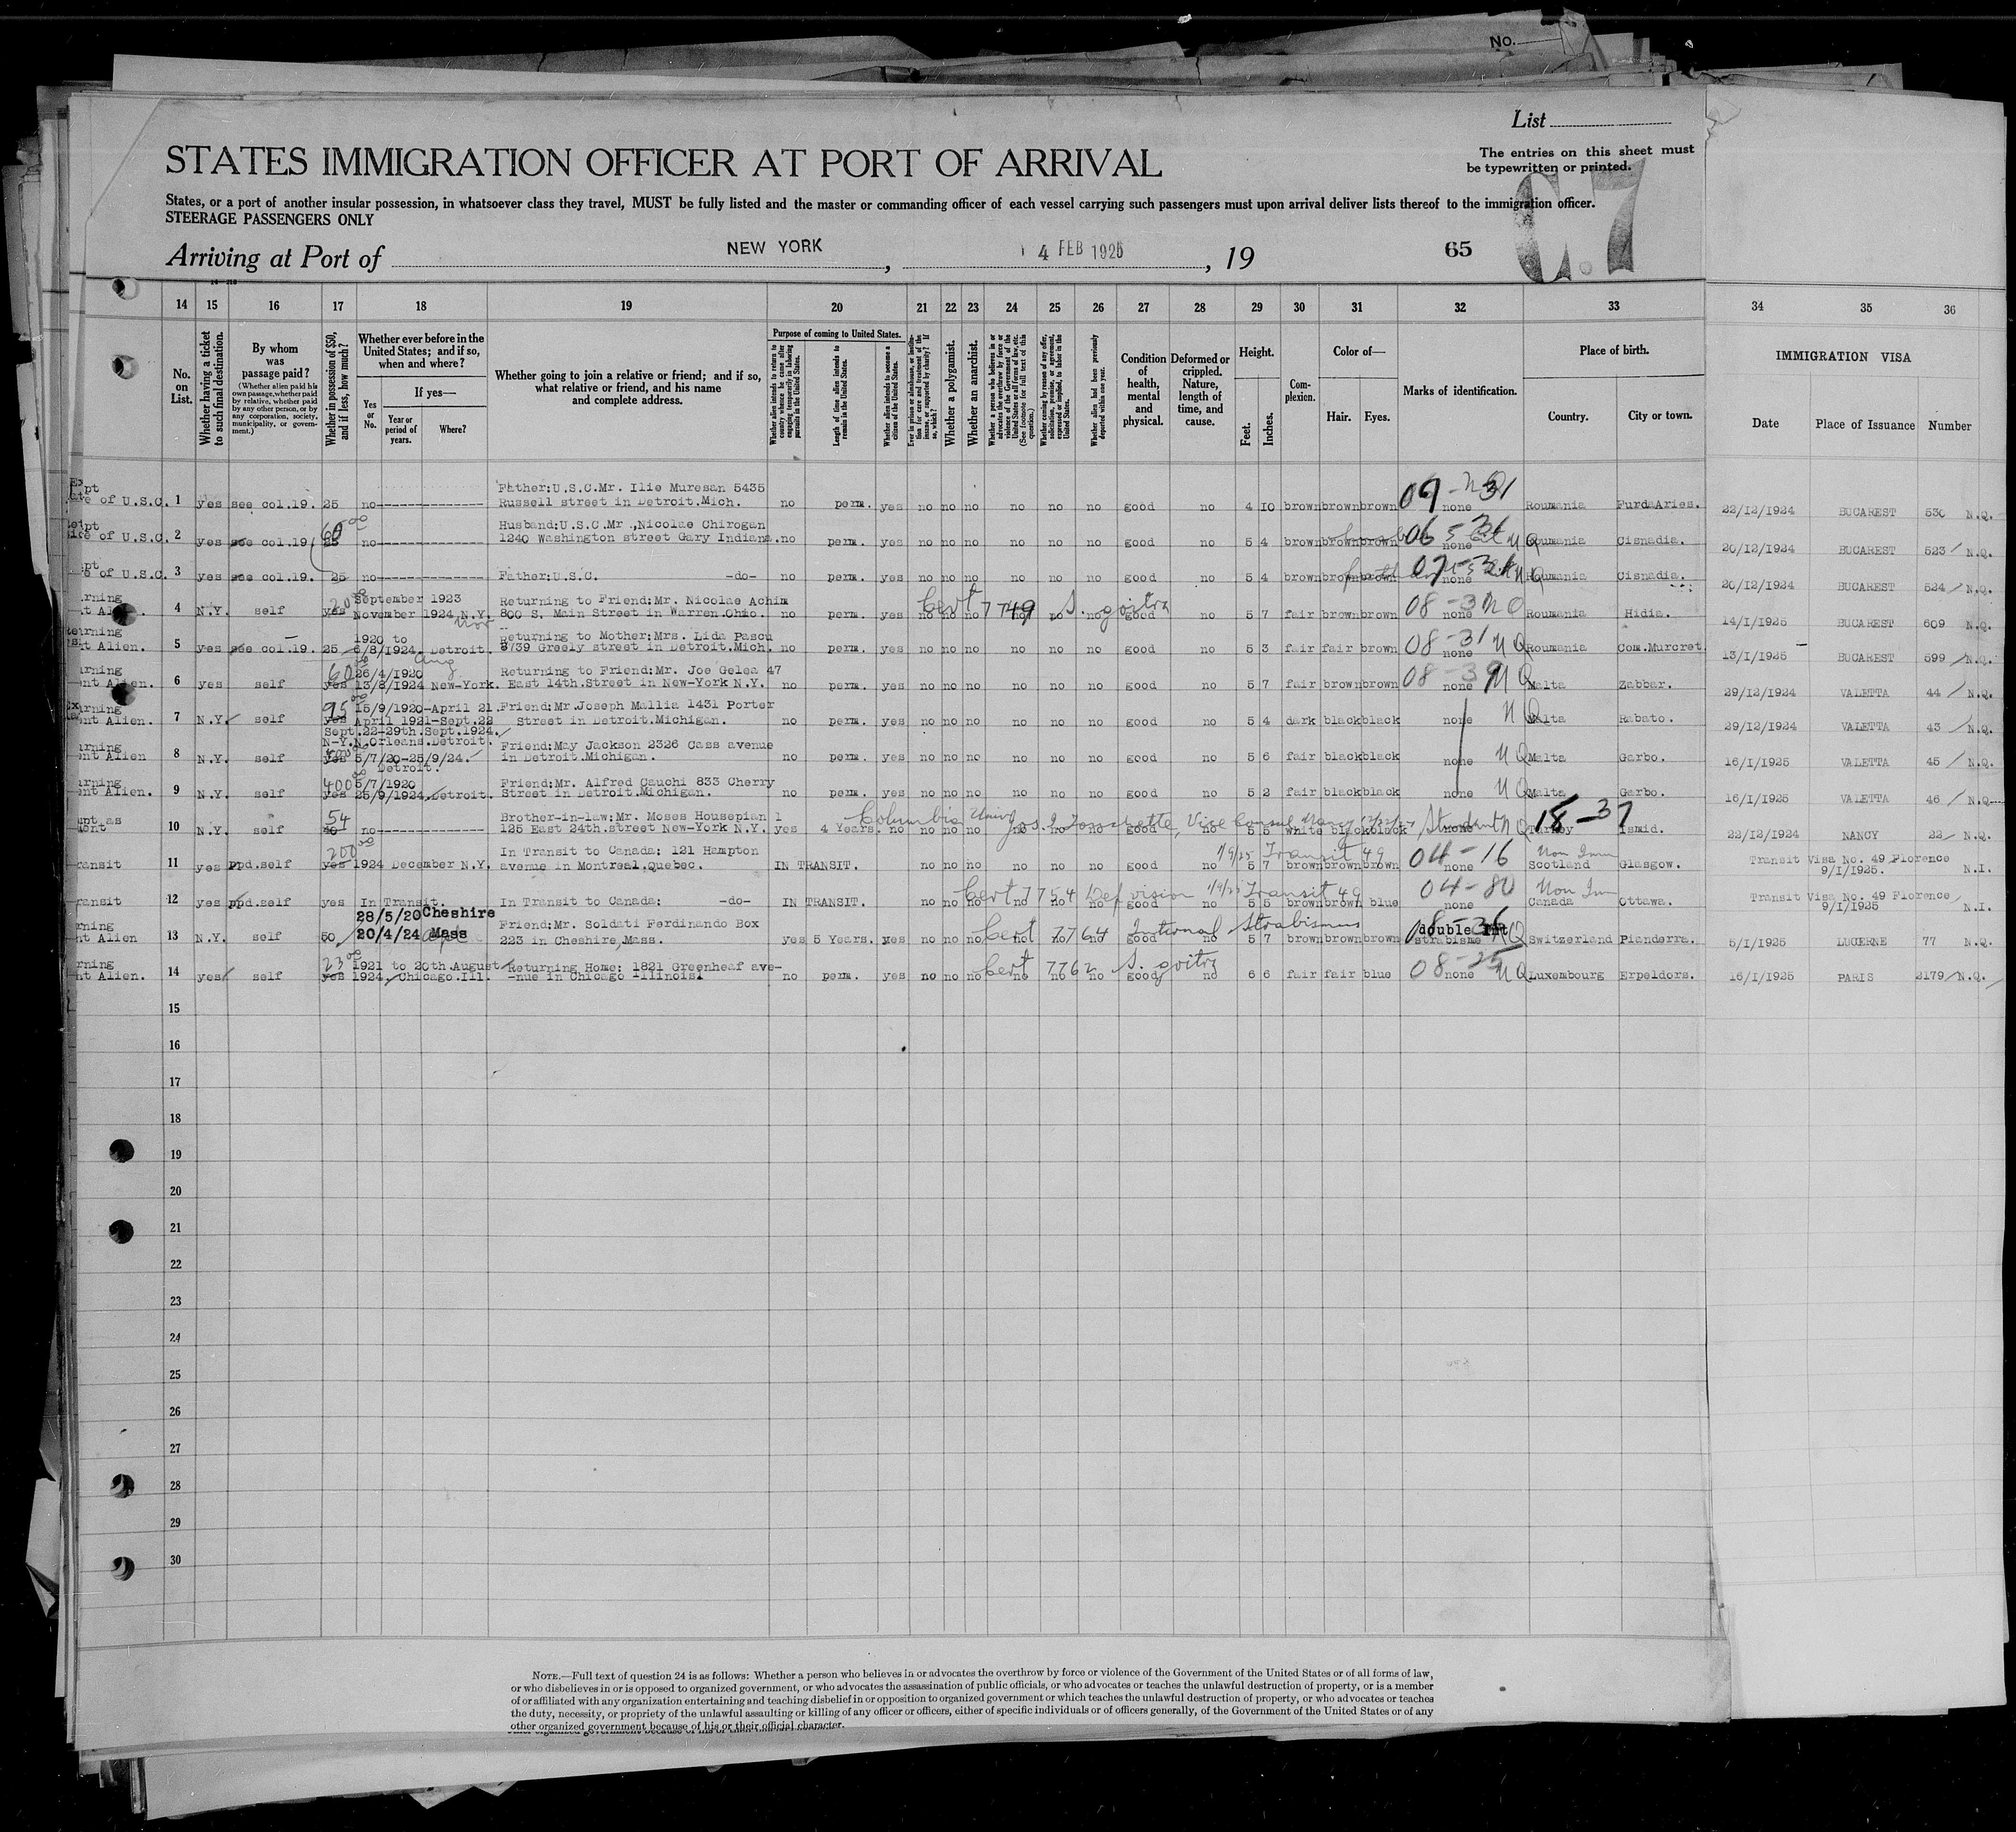 NO.
List
The entries on this sheet must
be typewritten or printed.
STATES IMMIGRATION OFFICER AT PORT OF ARRIVAL
States, or a port of another insular possession, in whatsoever class they travel, MUST be fully listed and the master or commanding officer of each vessel carrying such passengers must upon arrival deliver lists thereof to the immigration officer.
STEERAGE PASSENGERS ONLY
Arriving at Port of NEW YORK, 4 FEB 1925, 19 65
14 15 16 17 18 19 20 21 22 23 24 25 26 27 28 29 30 31 32 33 34 35 36
No. on List.
Whether having a ticket to such final destination.
By whom was passage paid?
(Whether alien paid his own passage, whether paid by relative, whether paid by any other person, or by any corporation, society, municipality, or government.)
Whether in possession of $50, and if less, how much?
Whether ever before in the United States; and if so, when and where?
Yes or No.
If yes—
Year or period of years.
Where?
Whether going to join a relative or friend; and if so, what relative or friend, and his name and complete address.
Purpose of coming to United States.
Length of time alien intends to remain in the United States.
Whether alien intends to become a citizen of the United States.
Whether a polygamist.
Whether an anarchist.
Condition of health, mental and physical.
Deformed or crippled. Nature, length of time, and cause.
Height.
Feet. Inches.
Complexion.
Color of—
Hair. Eyes.
Marks of identification.
Place of birth.
Country. City or town.
IMMIGRATION VISA
Date Place of Issuance Number
of U.S.C. 1 yes see col.19. 25 no Father:U.S.C.Mr. Ilie Muresan 5435
Russell street in Detroit.Mich. no perm. yes no no no no no no good no 4 10 brown brown brown none Roumania FurdaAries. 22/12/1924 BUCAREST 530 N.Q.
of U.S.C. 2 yes see col.19 25 no Husband:U.S.C.Mr.,Nicolae Chirogan
1240 Washington street Gary Indiana. no perm. yes no no no no no no good no 5 4 brown brown brown none Roumania Cisnadia. 20/12/1924 BUCAREST 523 N.Q.
of U.S.C. 3 yes see col.19. 25 no Father:U.S.C. -do- no perm. yes no no no no no no good no 5 4 brown brown brown none Roumania Cisnadia. 20/12/1924 BUCAREST 524 N.Q.
4 N.Y. self yes September 1923
November 1924 N.Y. Returning to Friend:Mr. Nicolae Achim
800 S. Main Street in Warren.Ohio. no perm. yes no no no Cert 7749 no no no S. goitre good no 5 7 fair brown brown 08-31 none Roumania Hidia. 14/I/1925 BUCAREST 609 N.Q.
Alien. 5 yes see col.19. 25 1920 to
6/8/1924. Detroit. Returning to Mother:Mrs. Lida Pascu
8739 Greely street in Detroit.Mich. no perm. yes no no no no no no good no 5 3 fair fair brown 08-31 N Q none Roumania Com.Murcret 13/I/1925 BUCAREST 599 N.Q.
6 yes self 60 yes 26/4/1920
13/8/1924 Aug New-York. Returning to Friend:Mr. Joe Gelea 47
East 14th.Street in New-York N.Y. no perm. yes no no no no no no good no 5 7 fair brown brown none N Q Malta Zabbar. 29/12/1924 VALETTA 44 N.Q.
7 N.Y. self 95 yes 15/9/1920-April 21.
April 1921-Sept.22
Sept.22-29th.Sept.1924. Friend:Mr.Joseph Mallia 1431 Porter
Street in Detroit.Michigan. no perm. yes no no no no no no good no 5 4 dark black black none N Q Malta Rabato. 29/12/1924 VALETTA 43 N.Q.
8 N.Y. self yes N-Y.N.Orleans.Detroit.
5/7/20-25/9/24.
Detroit. Friend:May Jackson 2326 Cass avenue
in Detroit.Michigan. no perm. yes no no no no no no good no 5 6 fair black black none N Q Malta Garbo. 16/I/1925 VALETTA 45 N.Q.
9 N.Y. self 400 yes 5/7/1920
25/9/1924.Detroit. Friend:Mr. Alfred Cauchi 833 Cherry
Street in Detroit.Michigan. no perm. yes no no no no no no good no 5 2 fair black black none N Q Malta Garbo. 16/I/1925 VALETTA 46 N.Q.
10 N.Y. self 54 no Brother-in-law:Mr. Moses Housepian
125 East 24th.street New-York N.Y. yes 4 Years. no Columbia Univ Vice Consul Nancy no no no good no 5 5 white black black Student N Q Turkey 18-37 Ismid. 22/12/1924 NANCY 22 N.Q.
11 yes ppd.self 200 yes 1924 December N.Y. In Transit to Canada: 121 Hampton
avenue in Montreal.Quebec. IN TRANSIT. no no no no no no good no Transit 49 5 7 brown brown brown 04-16 none Non Imm Scotland Glasgow. Transit Visa No. 49 Florence
9/1/1925. N.I.
12 yes ppd.self yes In Transit. In Transit to Canada: -do- IN TRANSIT. no no no Cert 7754 Def vision no no no good no Transit 49 5 5 brown brown blue 04-80 none Non Im Canada Ottawa. Transit Visa No. 49 Florence
9/1/1925 N.I.
Alien 13 N.Y. self 50 28/5/20 Cheshire
20/4/24 Mass Friend:Mr. Soldati Ferdinando Box
223 in Cheshire Mass. yes 5 Years. yes no no no Cert 7764 Internal Strabismus no no no good no 5 7 brown brown brown double Int
strabisme Switzerland Pianderra. 5/I/1925 LUCERNE 77 N.Q.
Alien. 14 yes self yes 1921 to 20th.August
1924 Chicago.Ill. Returning Home: 1821 Greenheaf ave-
-nue in Chicago -Illinois. no perm. yes no no no Cert 7762 S. goitre no no no good no 6 6 fair fair blue 08-25 none N Q Luxembourg Erpeldors. 16/I/1925 PARIS 2179 N.Q.
15
16
17
18
19
20
21
22
23
24
25
26
27
28
29
30
NOTE.—Full text of question 24 is as follows: Whether a person who believes in or advocates the overthrow by force or violence of the Government of the United States or of all forms of law,
or who disbelieves in or is opposed to organized government, or who advocates the assassination of public officials, or who advocates or teaches the unlawful destruction of property, or is a member
of or affiliated with any organization entertaining and teaching disbelief in or opposition to organized government or which teaches the unlawful destruction of property, or who advocates or teaches
the duty, necessity, or propriety of the unlawful assaulting or killing of any officer or officers, either of specific individuals or of officers generally, of the Government of the United States or of any
other organized government because of his or their official character.